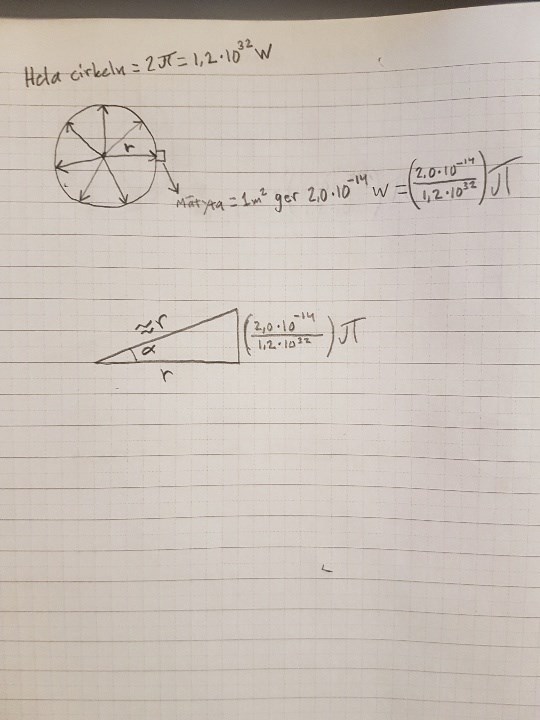 Hela cirkeln = 2π = 1,2·10³² W
r
Mätyta = 1m² ger 2,0·10⁻¹⁴ W = (2,0·10⁻¹⁴ / 1,2·10³²) π
≈r
α
r
(2,0·10⁻¹⁴ / 1,2·10³²) π